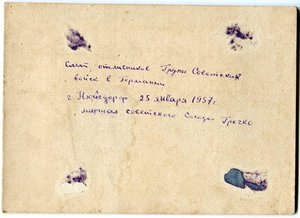 Слёт отличников Групы Советских
войск в Германии
г. Нойсдорф 25 января 1957 г.
маршал советского Союза Гречко